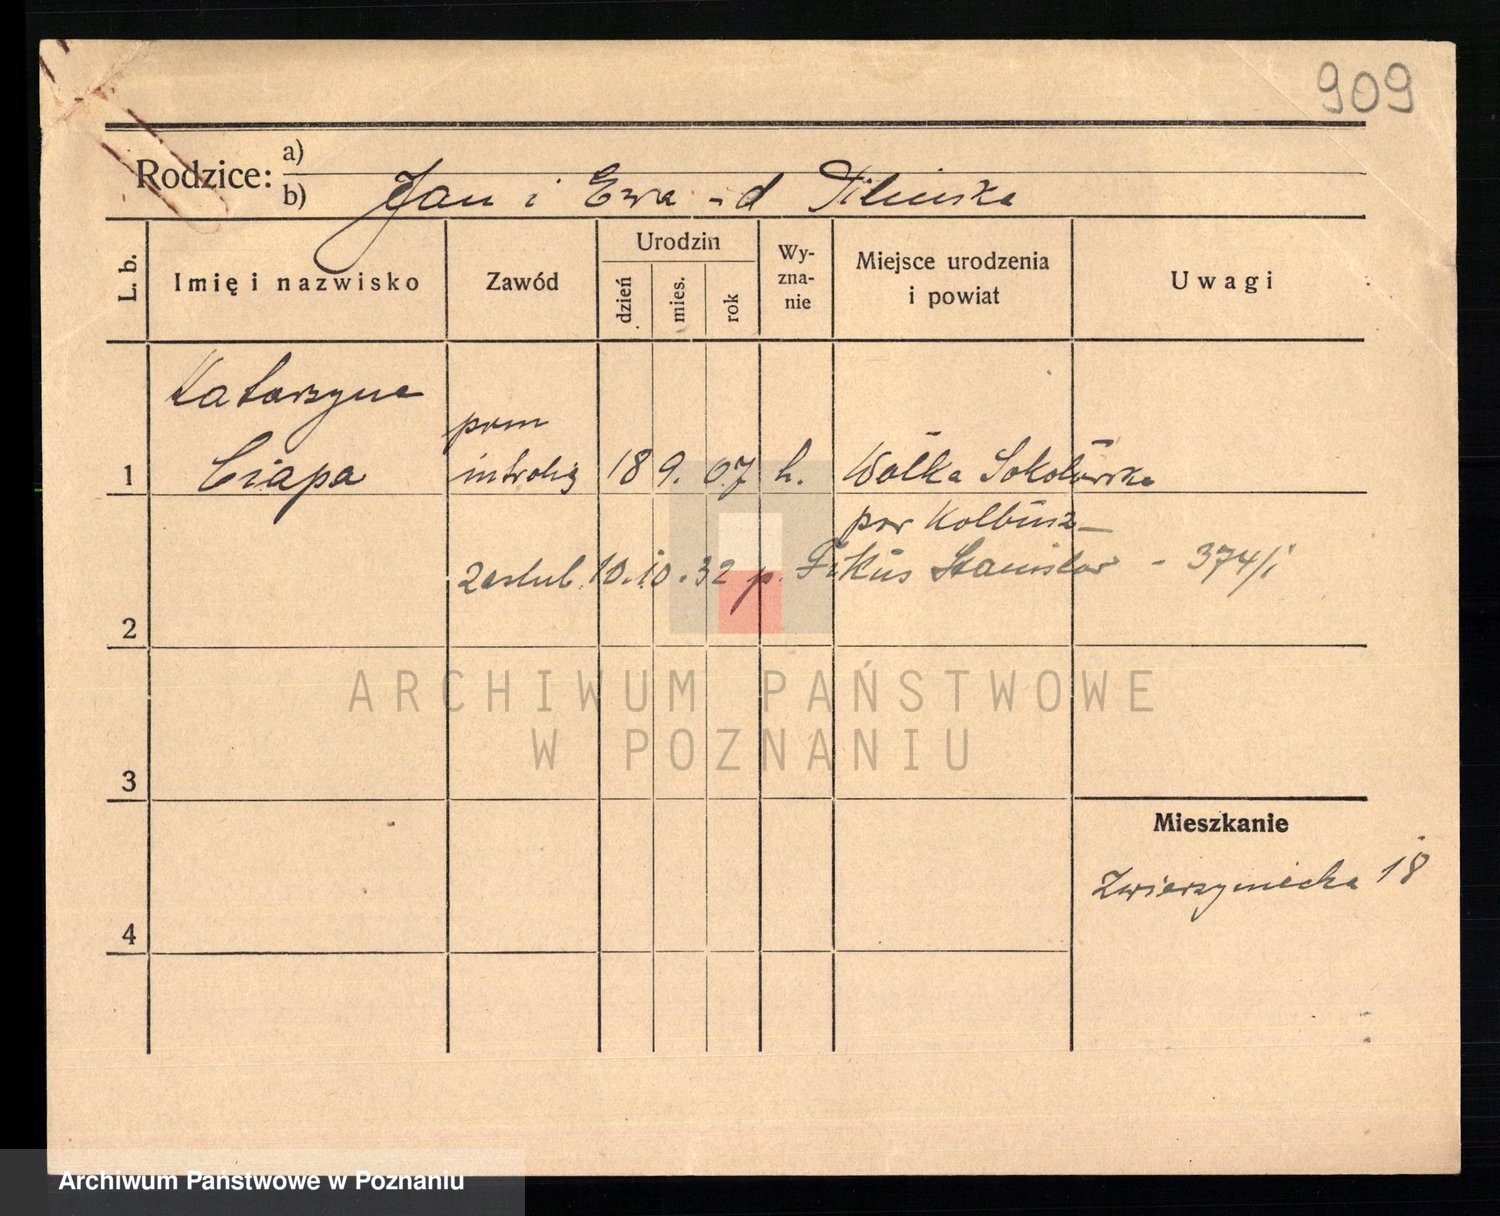 909
Rodzice: a)
b) Jan i Ewa - d
L. b.
Imię i nazwisko
Zawód
Urodzin
dzień
mies.
rok
Wy-
zna-
nie
Miejsce urodzenia
i powiat
Uwagi
Katarzyna
pom
1 Ciapa introlig 18 9. 07 k. Wólka Sokołowska
pow Kolbusz-
zaślub. 10.10.32 p. Fikus Stanisław - 374/i
2
3
4
Mieszkanie
Zwierzyniecka 18
ARCHIWUM PAŃSTWOWE
W POZNANIU
Archiwum Państwowe w Poznaniu